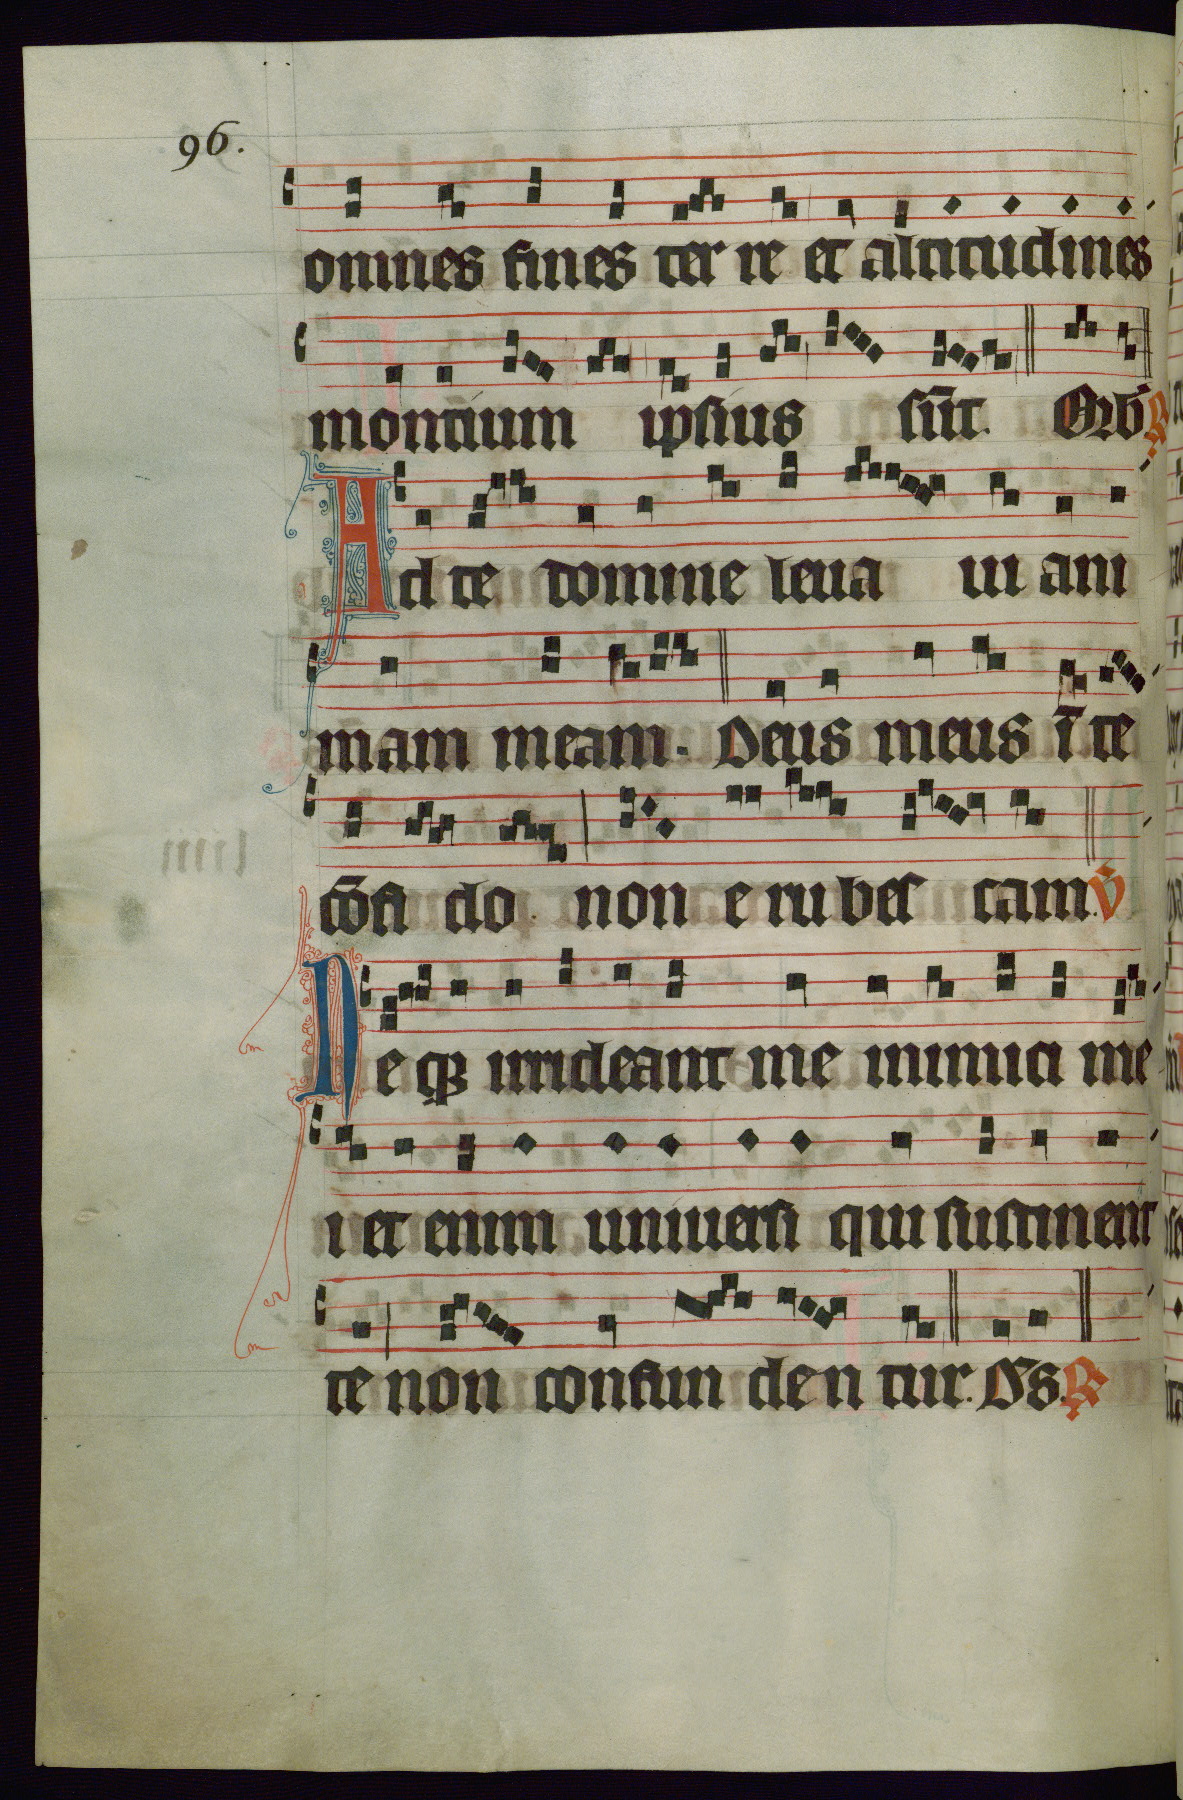 96.
omnes fines ter re et altitudines
montium ipsius sūt. Orb̄ ℟
Ad te domine leua ui ani
mam meam. Deus meus ī te
cōfi do. non e rubes cam. v̄
Ne q irrideant me inimici me
i et enim uniuersi qui sustinent
te non confun den tur. Ds. ℟